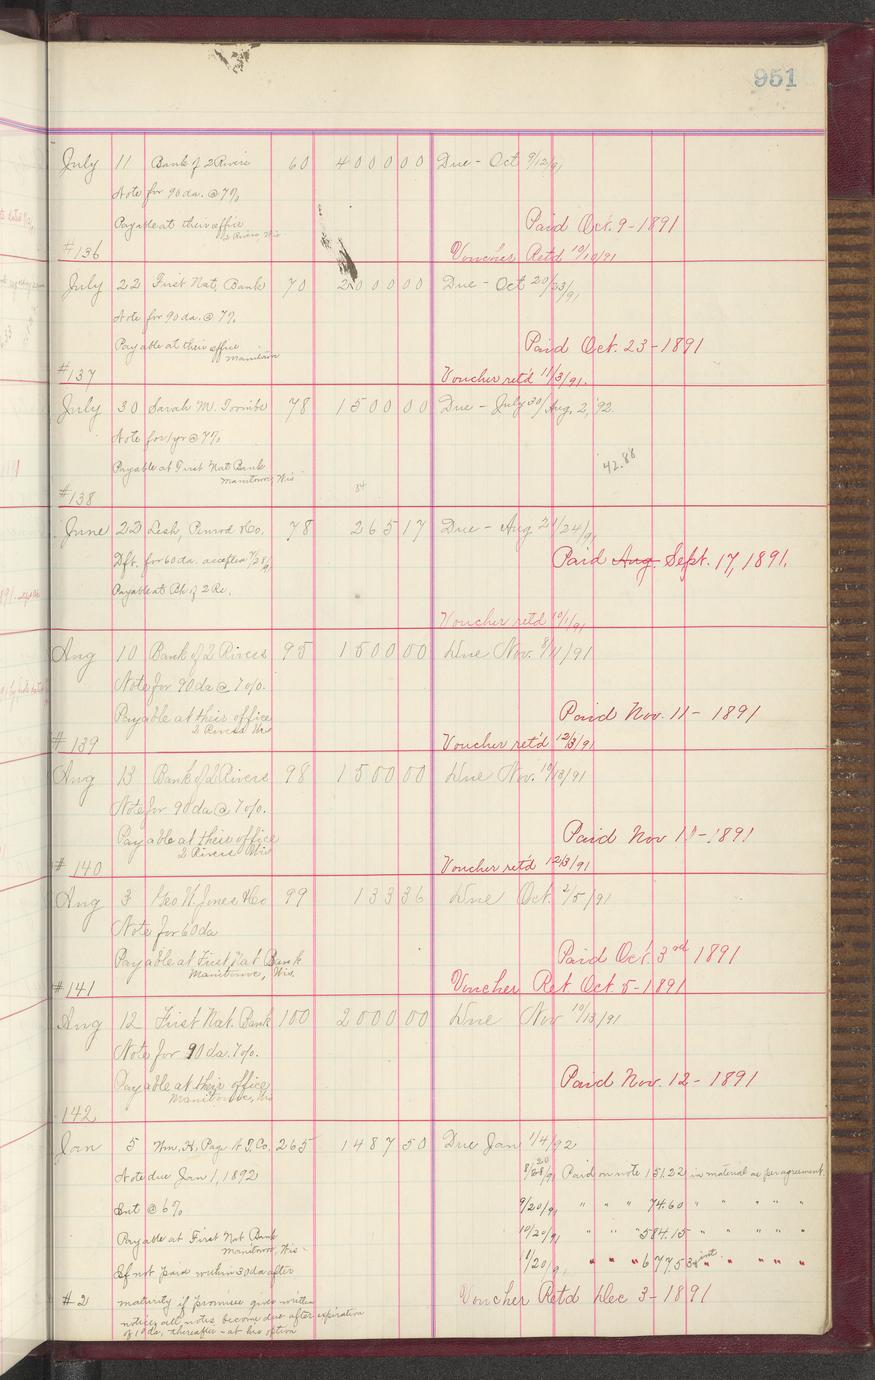 951
July 11 Bank of 2 Rivers 60 4000 00 Due - Oct 9/12/91
Note for 90 da. @ 7%
Payable at their office Paid Oct. 9 - 1891
2 Rivers, Wis
#136 Voucher Retd 10/10/91
July 22 First Nat, Bank 70 2000 00 Due - Oct 20/23/91
Note for 90 da. @ 7%
Payable at their office Paid Oct. 23 - 1891
Manitowoc
#137 Voucher ret'd 11/3/91.
July 30 Sarah M. Toombs 78 1500 00 Due - July 30/Aug. 2, '92.
Note for 1 yr @ 7%
Payable at First Nat Bank 42.88
Manitowoc, Wis
#138 34
June 22 Lesh, Penrod & Co. 78 265 17 Due - Aug 21/24/91
Dft. for 60 da. accepted 7/28/91 Paid Aug. Sept. 17, 1891.
Payable at Bk of 2 Rs.
Voucher retd 10/1/91
Aug 10 Bank of 2 Rivers 95 1500 00 Due Nov. 8/11/91
Note for 90 da @ 7 o/o.
Payable at their office Paid Nov. 11 - 1891
2 Rivers Wis
#139 Voucher ret'd 12/3/91
Aug 13 Bank of 2 Rivers 98 1500 00 Due Nov. 10/13/91
Note for 90 da @ 7 o/o.
Payable at their office Paid Nov - 1891
2 Rivers Wis
#140 Voucher ret'd 12/3/91
Aug 3 Geo W. Jones & Co 99 133 36 Due Oct. 2/5/91
Note for 60 da
Payable at First Nat Bank Paid Oct. 3rd 1891
Manitowoc, Wis.
#141 Voucher Ret. Oct. 5 - 1891
Aug 12 First Nat. Bank 100 2000 00 Due Nov 10/13/91
Note for 90 da. 7 o/o.
Payable at their office Paid Nov. 12 - 1891
Manitowoc, Wis
142
Jan 5 Wm. H. Page W. T. Co. 265 1487 50 Due Jan 1/4/92
Note due Jan 1, 1892 Paid on note 151.22 in material as per agreement.
Int @ 6% 9/20/91 " " " 74.60 " " " " "
Payable at First Nat Bank 10/20/91 " " " 584.15 " " " " "
Manitowoc, Wis -
If not paid within 30 da after " " " 677.53 & int " " " " "
#2 maturity if promisee gives written Voucher Retd Dec 3 - 1891
notice, all notes become due after expiration
of 10 da, thereafter - at his option